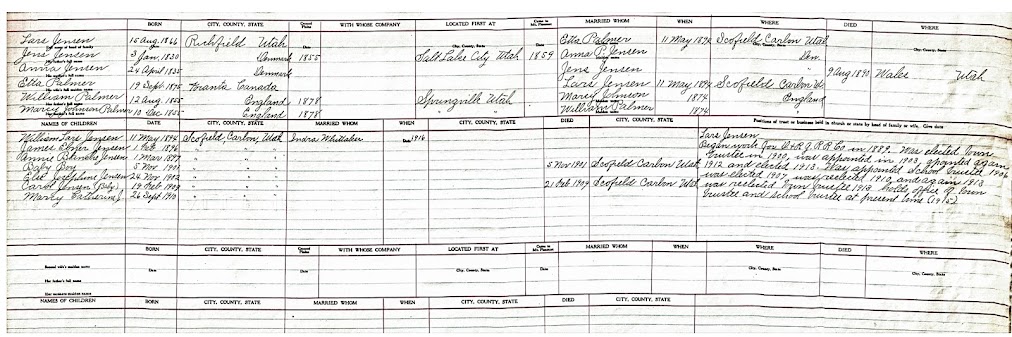 BORN CITY, COUNTY, STATE Crossed Plains WITH WHOSE COMPANY LOCATED FIRST AT MARRIED WHOM WHEN WHERE DIED WHERE
Lars Jensen 15 Aug. 1866 Richfield Utah Etta Palmer 11 May 1894 Scofield Carbon Utah
Jens Jensen 3 Jan. 1830 Denmark 1855 Salt Lake City Utah 1859 Anna P. Jensen Den.
Anna Jensen 24 April 1835 Denmark Jens Jensen " 9 Aug 1890 Wales Utah
Etta Palmer 19 Sept 1875 Canada Lars Jensen 11 May 1894 Scofield Carbon Ut
William Palmer 12 Aug. 1855 England 1878 Springville Utah Marcy Johnson 1874 England
Marcy Johnson Palmer 10 Dec 1855 England 1878 " " William Palmer 1874
NAMES OF CHILDREN DATE CITY, COUNTY, STATE MARRIED WHOM WHEN DIED WHERE Positions of trust or business held in church or state by head of family or wife. Give dates
William Lars Jensen 11 May 1894 Scofield Carbon Utah Indra Whittaker Date 1916 Lars Jensen
James Elmer Jensen 1 Oct 1896 " " " Began work for D.&R.G.R.R.Co in 1889. Was elected Town
Annie Blanche Jensen 1 Mar 1899 " trustee in 1900, was appointed in 1903, appointed again
Baby Boy 5 Nov 1901 " 5 Nov 1901 Scofield Carbon Utah 1912 and elected 1913. Was appointed School trustee 1906
Josephine Jensen 24 Nov 1902 " was elected 1907, was reelected 1910, and again 1913
Carol Jensen (Baby) 19 Feb 1909 " 21 Feb 1909 Scofield Carbon Utah was reelected Town trustee 1913 holds office of Town
Marcy Catherine J. 26 Sept 1910 " trustee and School trustee at present time (1915)
BORN CITY, COUNTY, STATE WITH WHOSE COMPANY LOCATED FIRST AT MARRIED WHOM WHEN WHERE DIED WHERE
Second wife's maiden name Date Date City, County, State Date City, County, State Date City, County, State
Her father's full name
Her mothers maiden name
NAMES OF CHILDREN BORN CITY, COUNTY, STATE MARRIED WHOM WHEN CITY, COUNTY, STATE DIED CITY, COUNTY, STATE